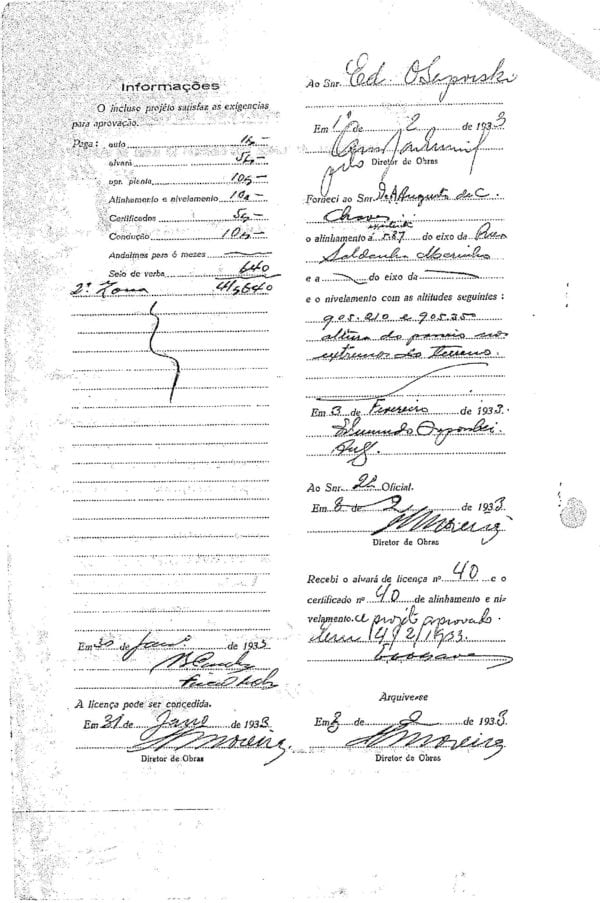 Informações
O incluso projéto satisfaz as exigencias
para aprovação.
Paga: auto
alvará 5$-
apr. planta 10$-
Alinhamento e nivelamento 10$-
Certificados 5$-
Condução 10$-
Andaimes para 6 mezes
Selo de verba 640
2ª Zona 41$640
Em 30 de Jan. de 1933
A licença pode ser concedida.
Em 31 de Janº de 1933
Moreira
Diretor de Obras
Ao Snr. Ed.
Em 1º de 2 de 1933
pelo Diretor de Obras
Forneci ao Snr. Augusto de C.
Chaves
o alinhamento a do eixo da Rua
Saldanha Marinho
e a do eixo da
e o nivelamento com as altitudes seguintes:
905.210 e 905.
altura do passeio nos
extremos do terreno.
Em 3 de Fevereiro de 1933.
Ao Snr. 2º Oficial.
Em 3 de 2 de 1933
Moreira
Diretor de Obras
Recebi o alvará de licença nº 40 e o
certificado nº 40 de alinhamento e ni-
velamento. e projéto aprovado.
em 14/2/1933.
Arquive-se
Em 3 de 2 de 1933.
Moreira
Diretor de Obras